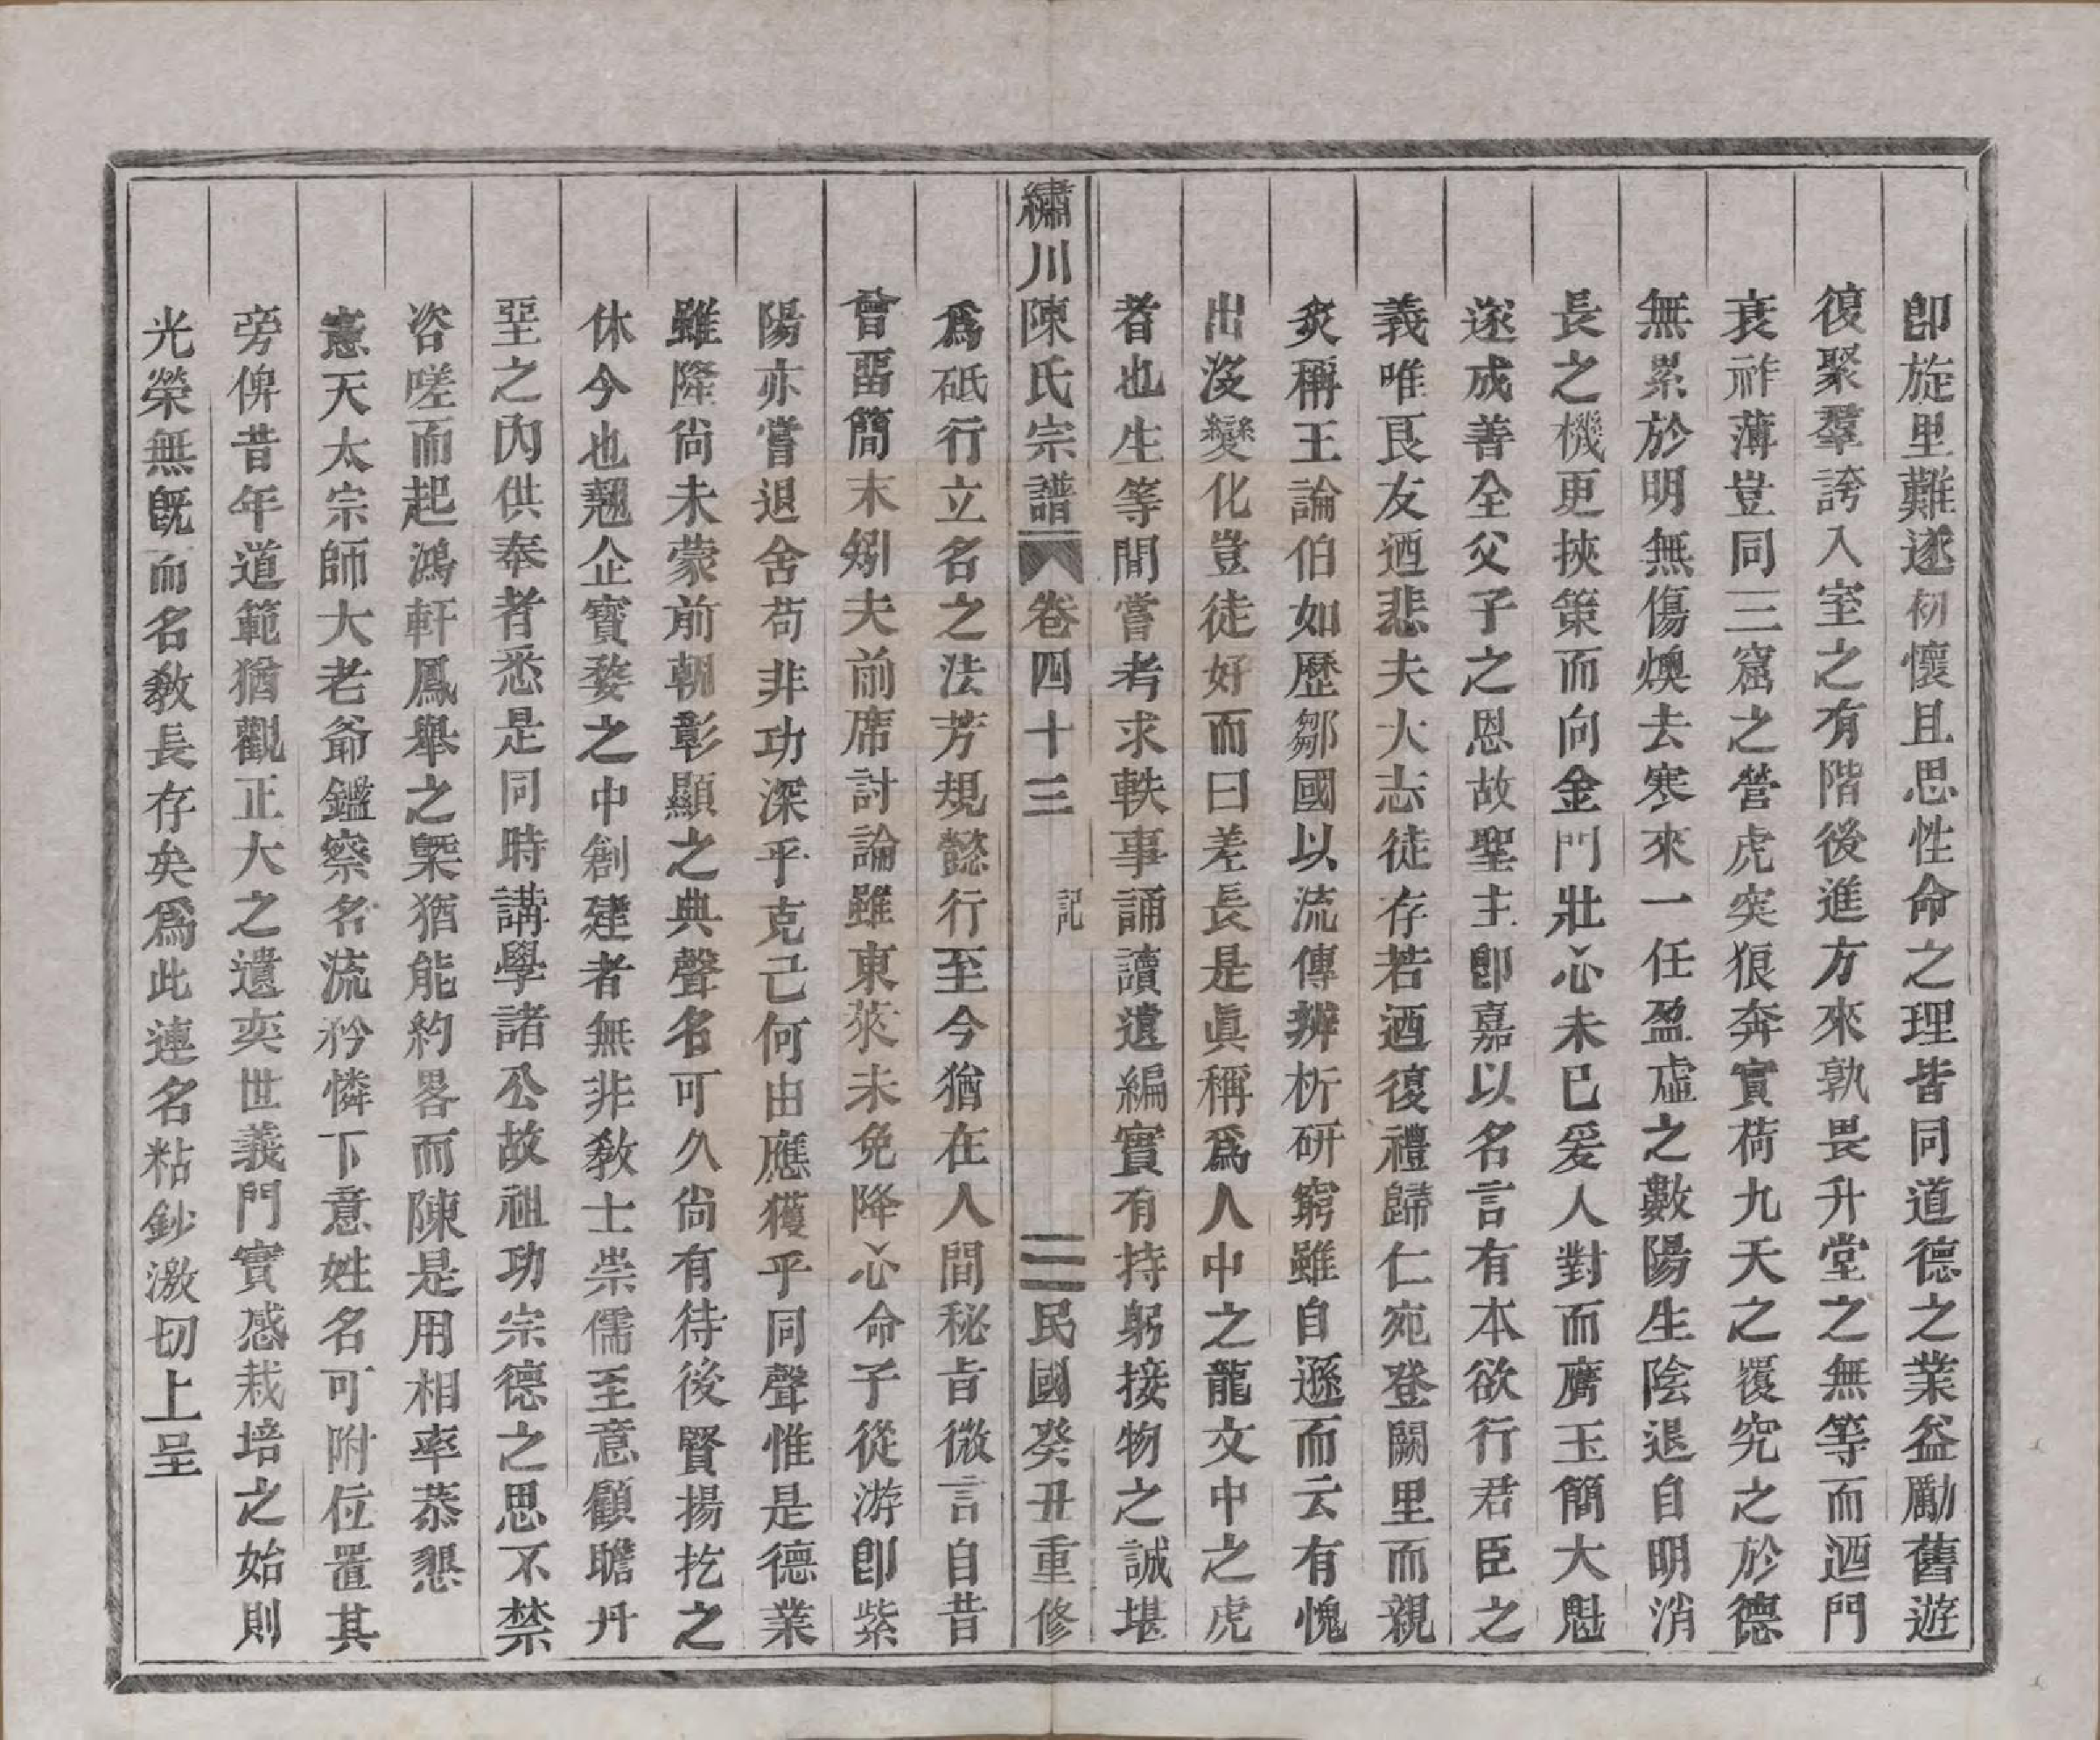 卽旋里難遂初懷且思性命之理皆同道德之業益勵舊遊
復聚羣誇入室之有階後進方來孰畏升堂之無等而迺門
衰祚薄豈同三窟之營虎突狼奔實荷九天之覆究之於德
無累於明無傷燠去寒來一任盈虛之數陽生陰退自明消
長之機更挾策而向金門壯心未已爰人對而膺玉簡大魁
遂成善全父子之恩故聖主卽嘉以名言有本欲行君臣之
義唯良友迺悲夫大志徒存若迺復禮歸仁宛登闕里而親
炙稱王論伯如歷鄒國以流傳辨析研窮雖自遜而云有愧
出沒變化豈徒好而曰差長是眞稱爲人中之龍文中之虎
者也生等閒嘗考求軼事誦讀遺編實有持躬接物之誠堪
繡川陳氏宗譜 卷四十三 記 二 民國癸丑重修
爲砥行立名之法芳規懿行至今猶在人間秘旨微言自昔
曾畱簡末矧夫前席討論雖東萊未免降心命子從游卽紫
陽亦嘗退舍苟非功深乎克己何由應獲乎同聲惟是德業
雖隆尙未蒙前朝彰顯之典聲名可久尙有待後賢揚扢之
休今也翹企寶婺之中創建者無非敎士崇儒至意顧瞻丹
堊之內供奉者悉是同時講學諸公故祖功宗德之思不禁
咨嗟而起鴻軒鳳舉之槩猶能約畧而陳是用相率恭懇
憲天太宗師大老爺鑑察名流矜憐下意姓名可附位置其
旁俾昔年道範猶觀正大之遺奕世義門實感栽培之始則
光榮無旣而名敎長存矣爲此連名粘鈔激切上呈